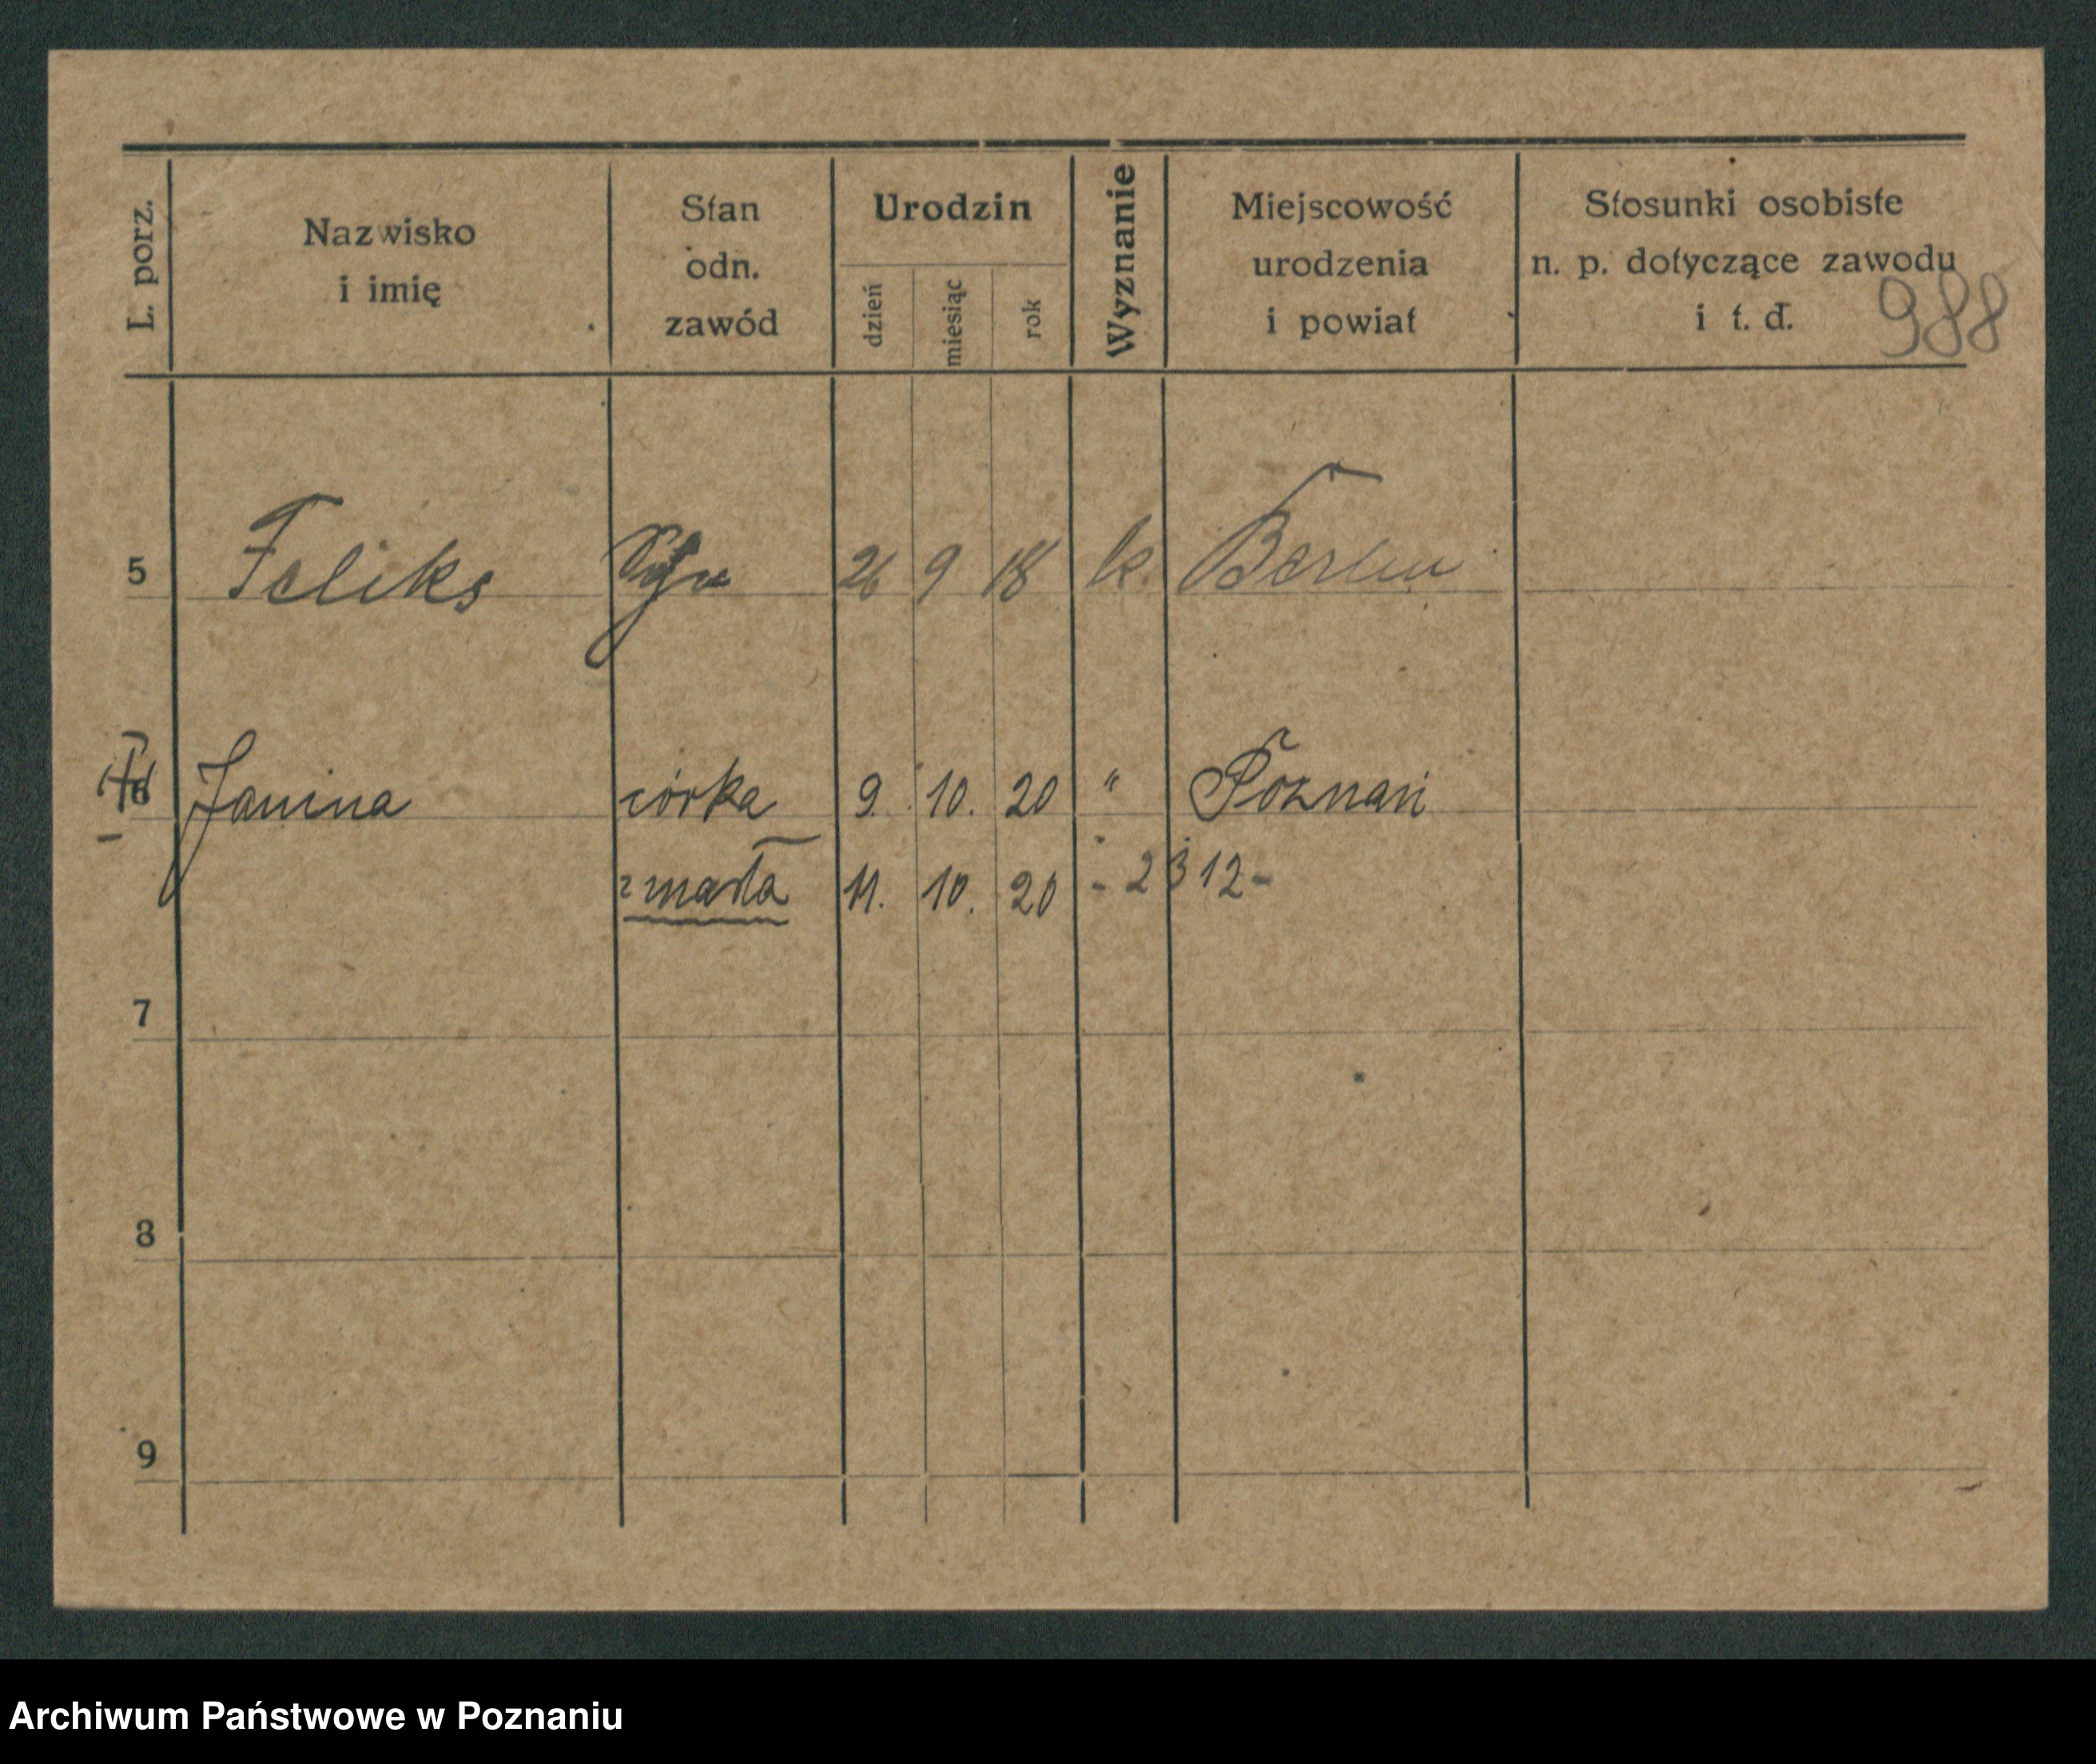 L. porz.
Nazwisko
i imię
Stan
odn.
zawód
Urodzin
dzień
miesiąc
rok
Wyznanie
Miejscowość
urodzenia
i powiat
Stosunki osobiste
n. p. dotyczące zawodu
i t. d.
988
5 Feliks 26 9 18 k. Berlin
6 Janina córka 9. 10. 20 " Poznań
zmarła 11. 10. 20 - 2312-
7
8
9
Archiwum Państwowe w Poznaniu